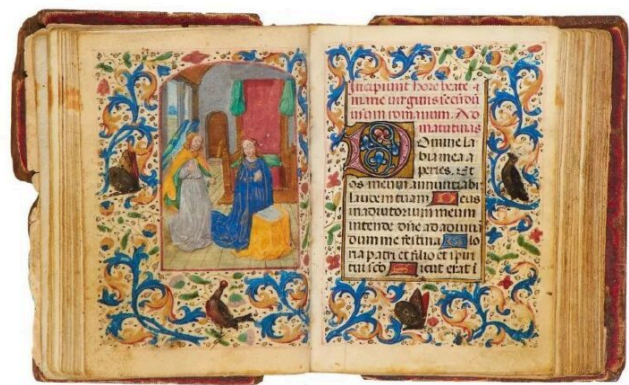 Incipiunt hore beate
marie virginis secūdū
usum romanum. Ad
matutinas
Domine la
bia mea a
peries. Et
os meum annuntiabit
laudem tuam. Deus
in adiutorium meum
intende dn̄e ad adiuuā
dum me festina Glo
ria patri et filio et spiri
tui scō Sicut erat i